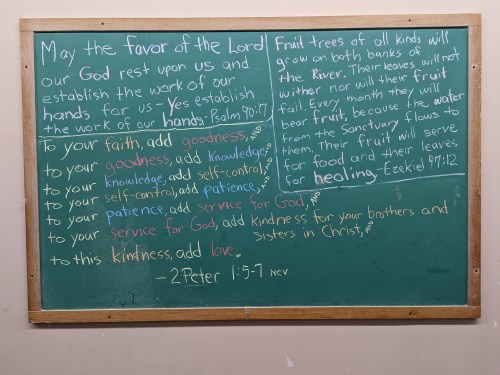 May the favor of the Lord
our God rest upon us and
establish the work of our
hands for us - Yes establish
the work of our hands-Psalm 90:17
Fruit trees of all kinds will
grow on both banks of
the River. Their leaves will not
wither nor will their fruit
fail. Every month they will
bear fruit, because the water
from the Sanctuary flows to
them. Their fruit will serve
for food and their leaves
for healing.-Ezekiel 47:12
To your faith, add goodness, AND
to your goodness, add knowledge, AND
to your knowledge, add self-control, AND
to your self-control, add patience, AND
to your patience, add service for God, AND
to your service for God, add kindness for your brothers and
sisters in Christ, AND
to this kindness, add love.
- 2 Peter 1:5-7 NCV